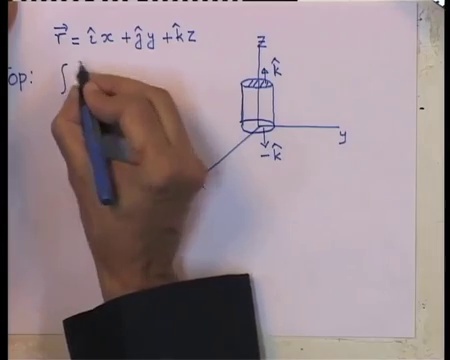 r⃗ = îx + ĵy + k̂z
op: ∫
z
k̂
y
-k̂